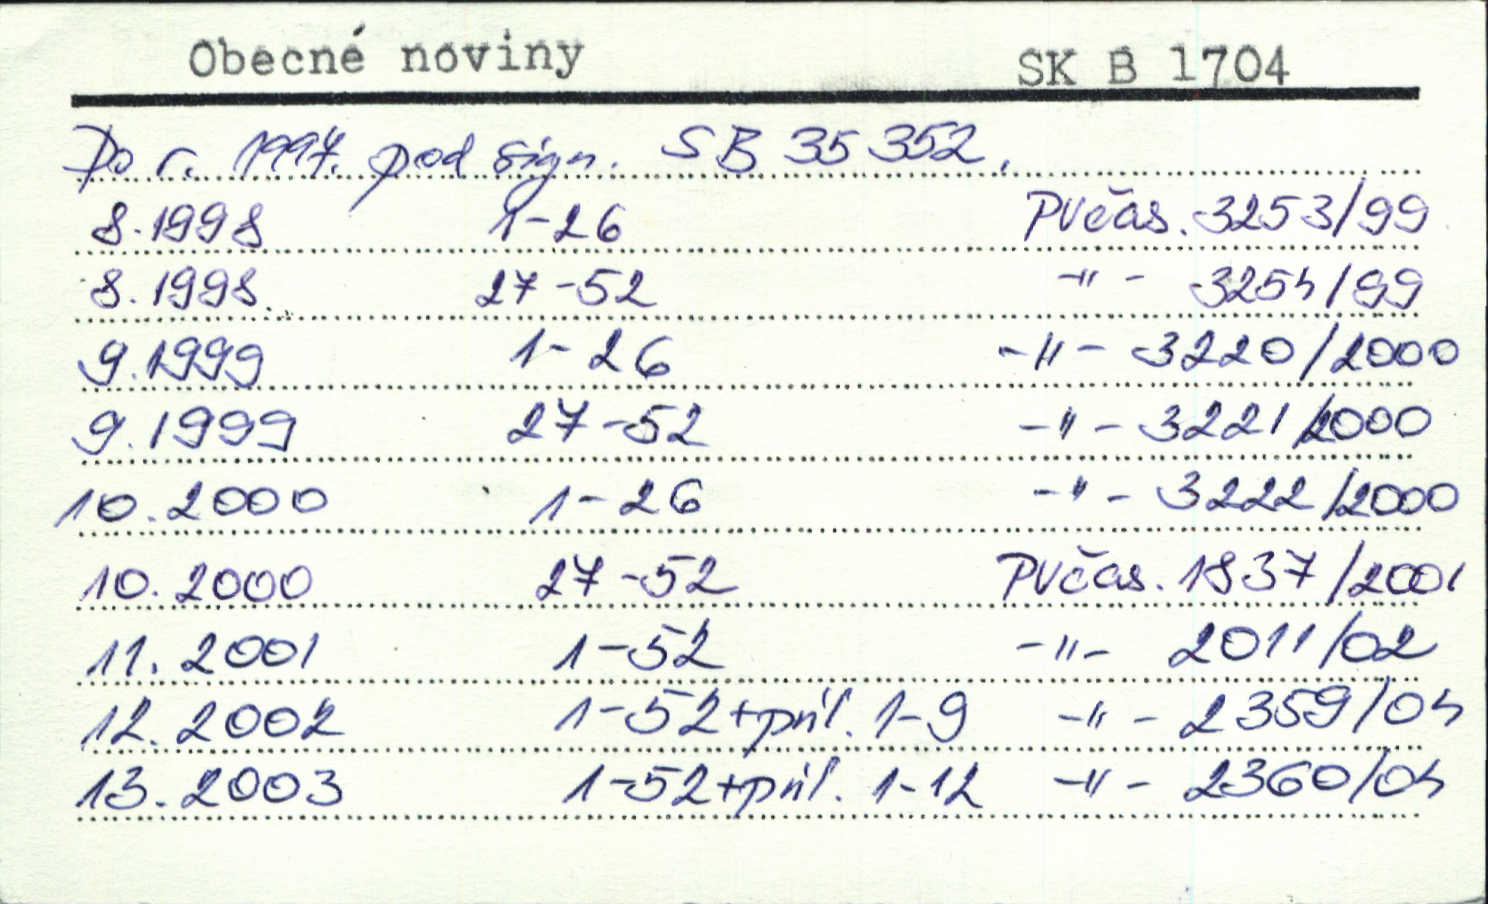 Obecné noviny SK B 1704
Do r. 1997. pod sign. SB 35 352.
8.1998 1-26 PVčas. 3253/99
8.1998. 27-52 -"- 3254/99
9.1999 1-26 -"- 3220/2000
9.1999 27-52 -"- 3221/2000
10.2000 1-26 -"- 3222/2000
10.2000 27-52 PVčas. 1837/2001
11.2001 1-52 -"- 2011/02
12.2002 1-52+príl. 1-9 -"- 2359/04
13.2003 1-52+príl. 1-12 -"- 2360/04